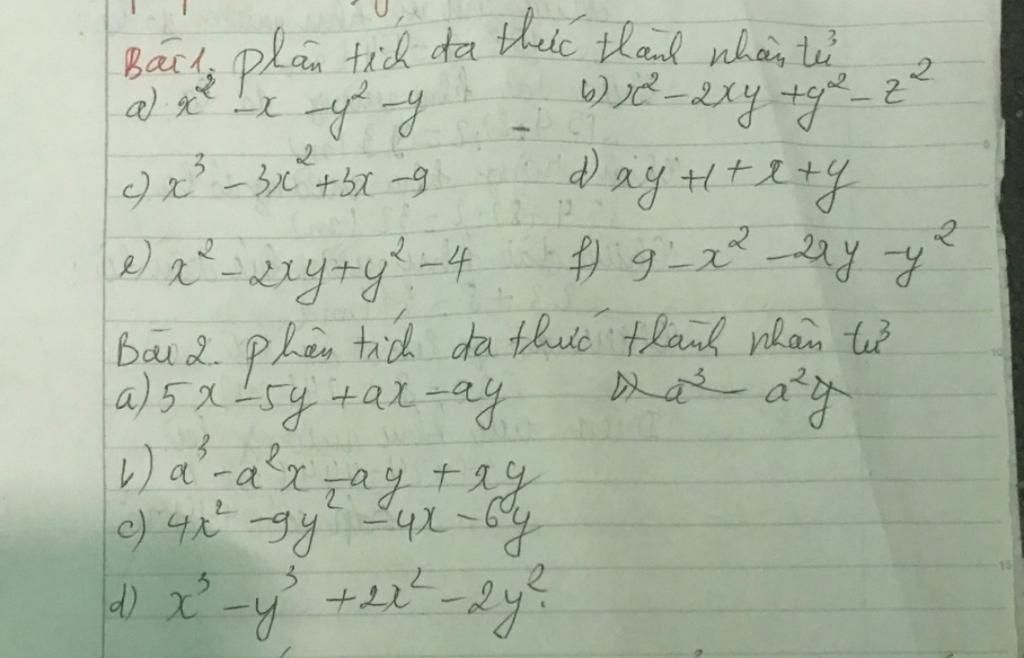 Bài 1. phân tích đa thức thành nhân tử
a) x² - x - y² - y b) x² - 2xy + y² - z²
c) x³ - 3x² + 3x - 9 d) xy + 1 + x + y
e) x² - 2xy + y² - 4 f) 9 - x² - 2xy - y²
Bài 2. phân tích đa thức thành nhân tử
a) 5x - 5y + ax - ay b) a³ - a²y
b) a³ - a²x - ay + xy
c) 4x² - 9y² - 4x - 6y
d) x³ - y³ + 2x² - 2y².